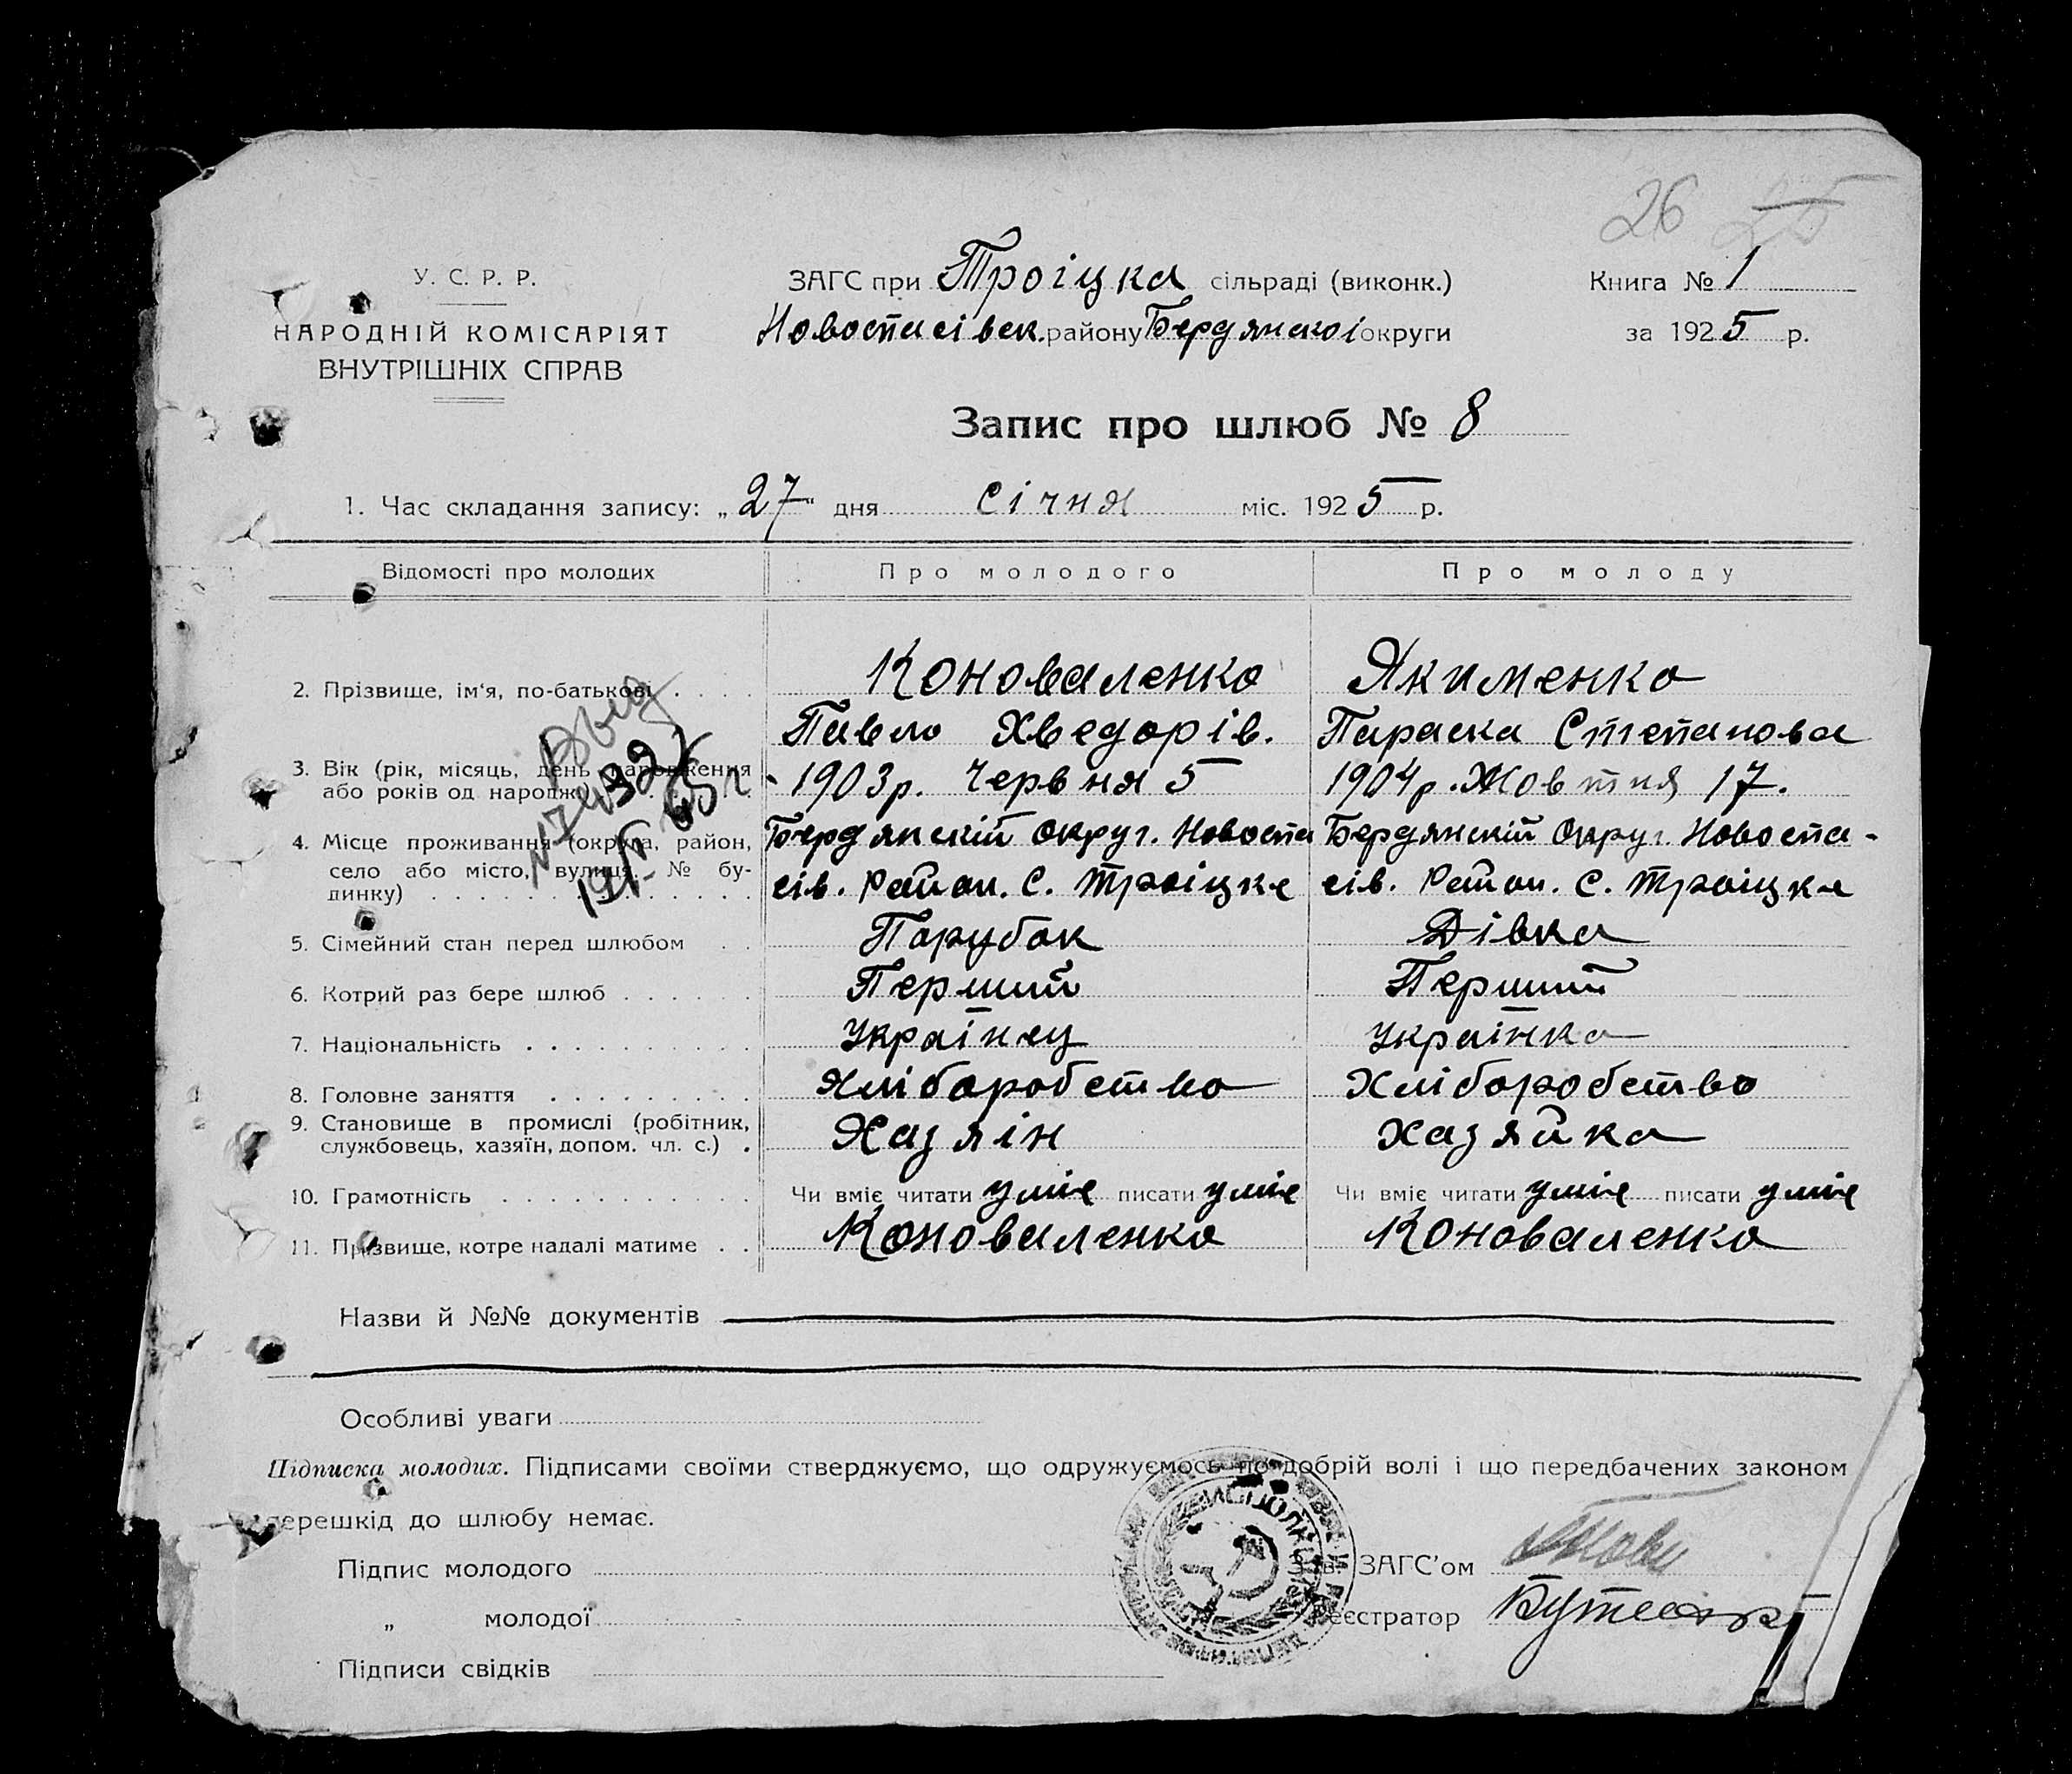 26 25
У. С. Р. Р.
НАРОДНІЙ КОМІСАРІЯТ
ВНУТРІШНІХ СПРАВ
ЗАГС при Троіцка сільраді (виконк.)
Новоспасівск. району Бердянскоі округи
Книга № 1
за 1925 р.
Запис про шлюб № 8
1. Час складання запису: „27“ дня січня міс. 1925 р.
Відомості про молодих Про молодого Про молоду
2. Прізвище, ім‘я, по-батькові . . . . Коноваленко Якименко
Павло Хведорів. Параска Степанова
3. Вік (рік, місяць, день народження
або років од народж. 1903 р. Червня 5 1904 р. Жовтня 17.
4. Місце проживання (округа, район,
село або місто, вулиця, № бу-
динку) . . . . . . . . . . . . . .
Бердянский округ. Новоспа
сів. Район. С. Троіцке
Бердянский Округ. Новоспа-
сів. Район. С. Троіцке
5. Сімейний стан перед шлюбом . . Парубок Дівка
6. Котрий раз бере шлюб . . . . . . Перший Перший
7. Національність . . . . . . . . . . Украінец Украінка
8. Головне заняття . . . . . . . . . Хліборобство Хліборобство
9. Становище в промислі (робітник,
службовець, хазяїн, допом. чл. с.) . Хазяін Хазяйка
10. Грамотність . . . . . . . . . . . Чи вміє читати уміє писати уміє Чи вміє читати уміє писати уміє
11. Прізвище, котре надалі матиме . . Коноваленко Коноваленко
Назви й №№ документів
Особливі уваги
Підписка молодих. Підписами своїми стверджуємо, що одружуємось по добрій волі і що передбачених законом
перешкід до шлюбу немає.
Підпис молодого
Зав. ЗАГС’ом
„ молодої
Реєстратор
Підписи свідків